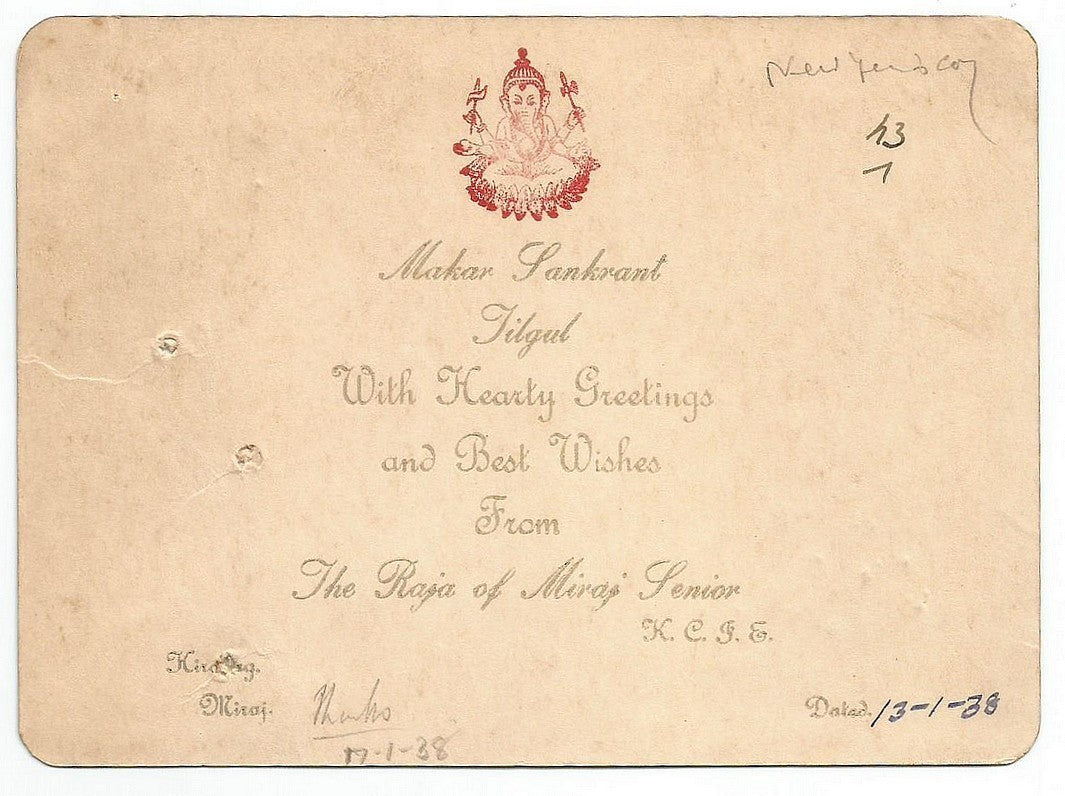 13
1
Makar Sankrant
Tilgul
With Hearty Greetings
and Best Wishes
From
The Raja of Miraj Senior
K. C. I. E.
Miraj.
Thanks
17-1-38
Dated. 13-1-38